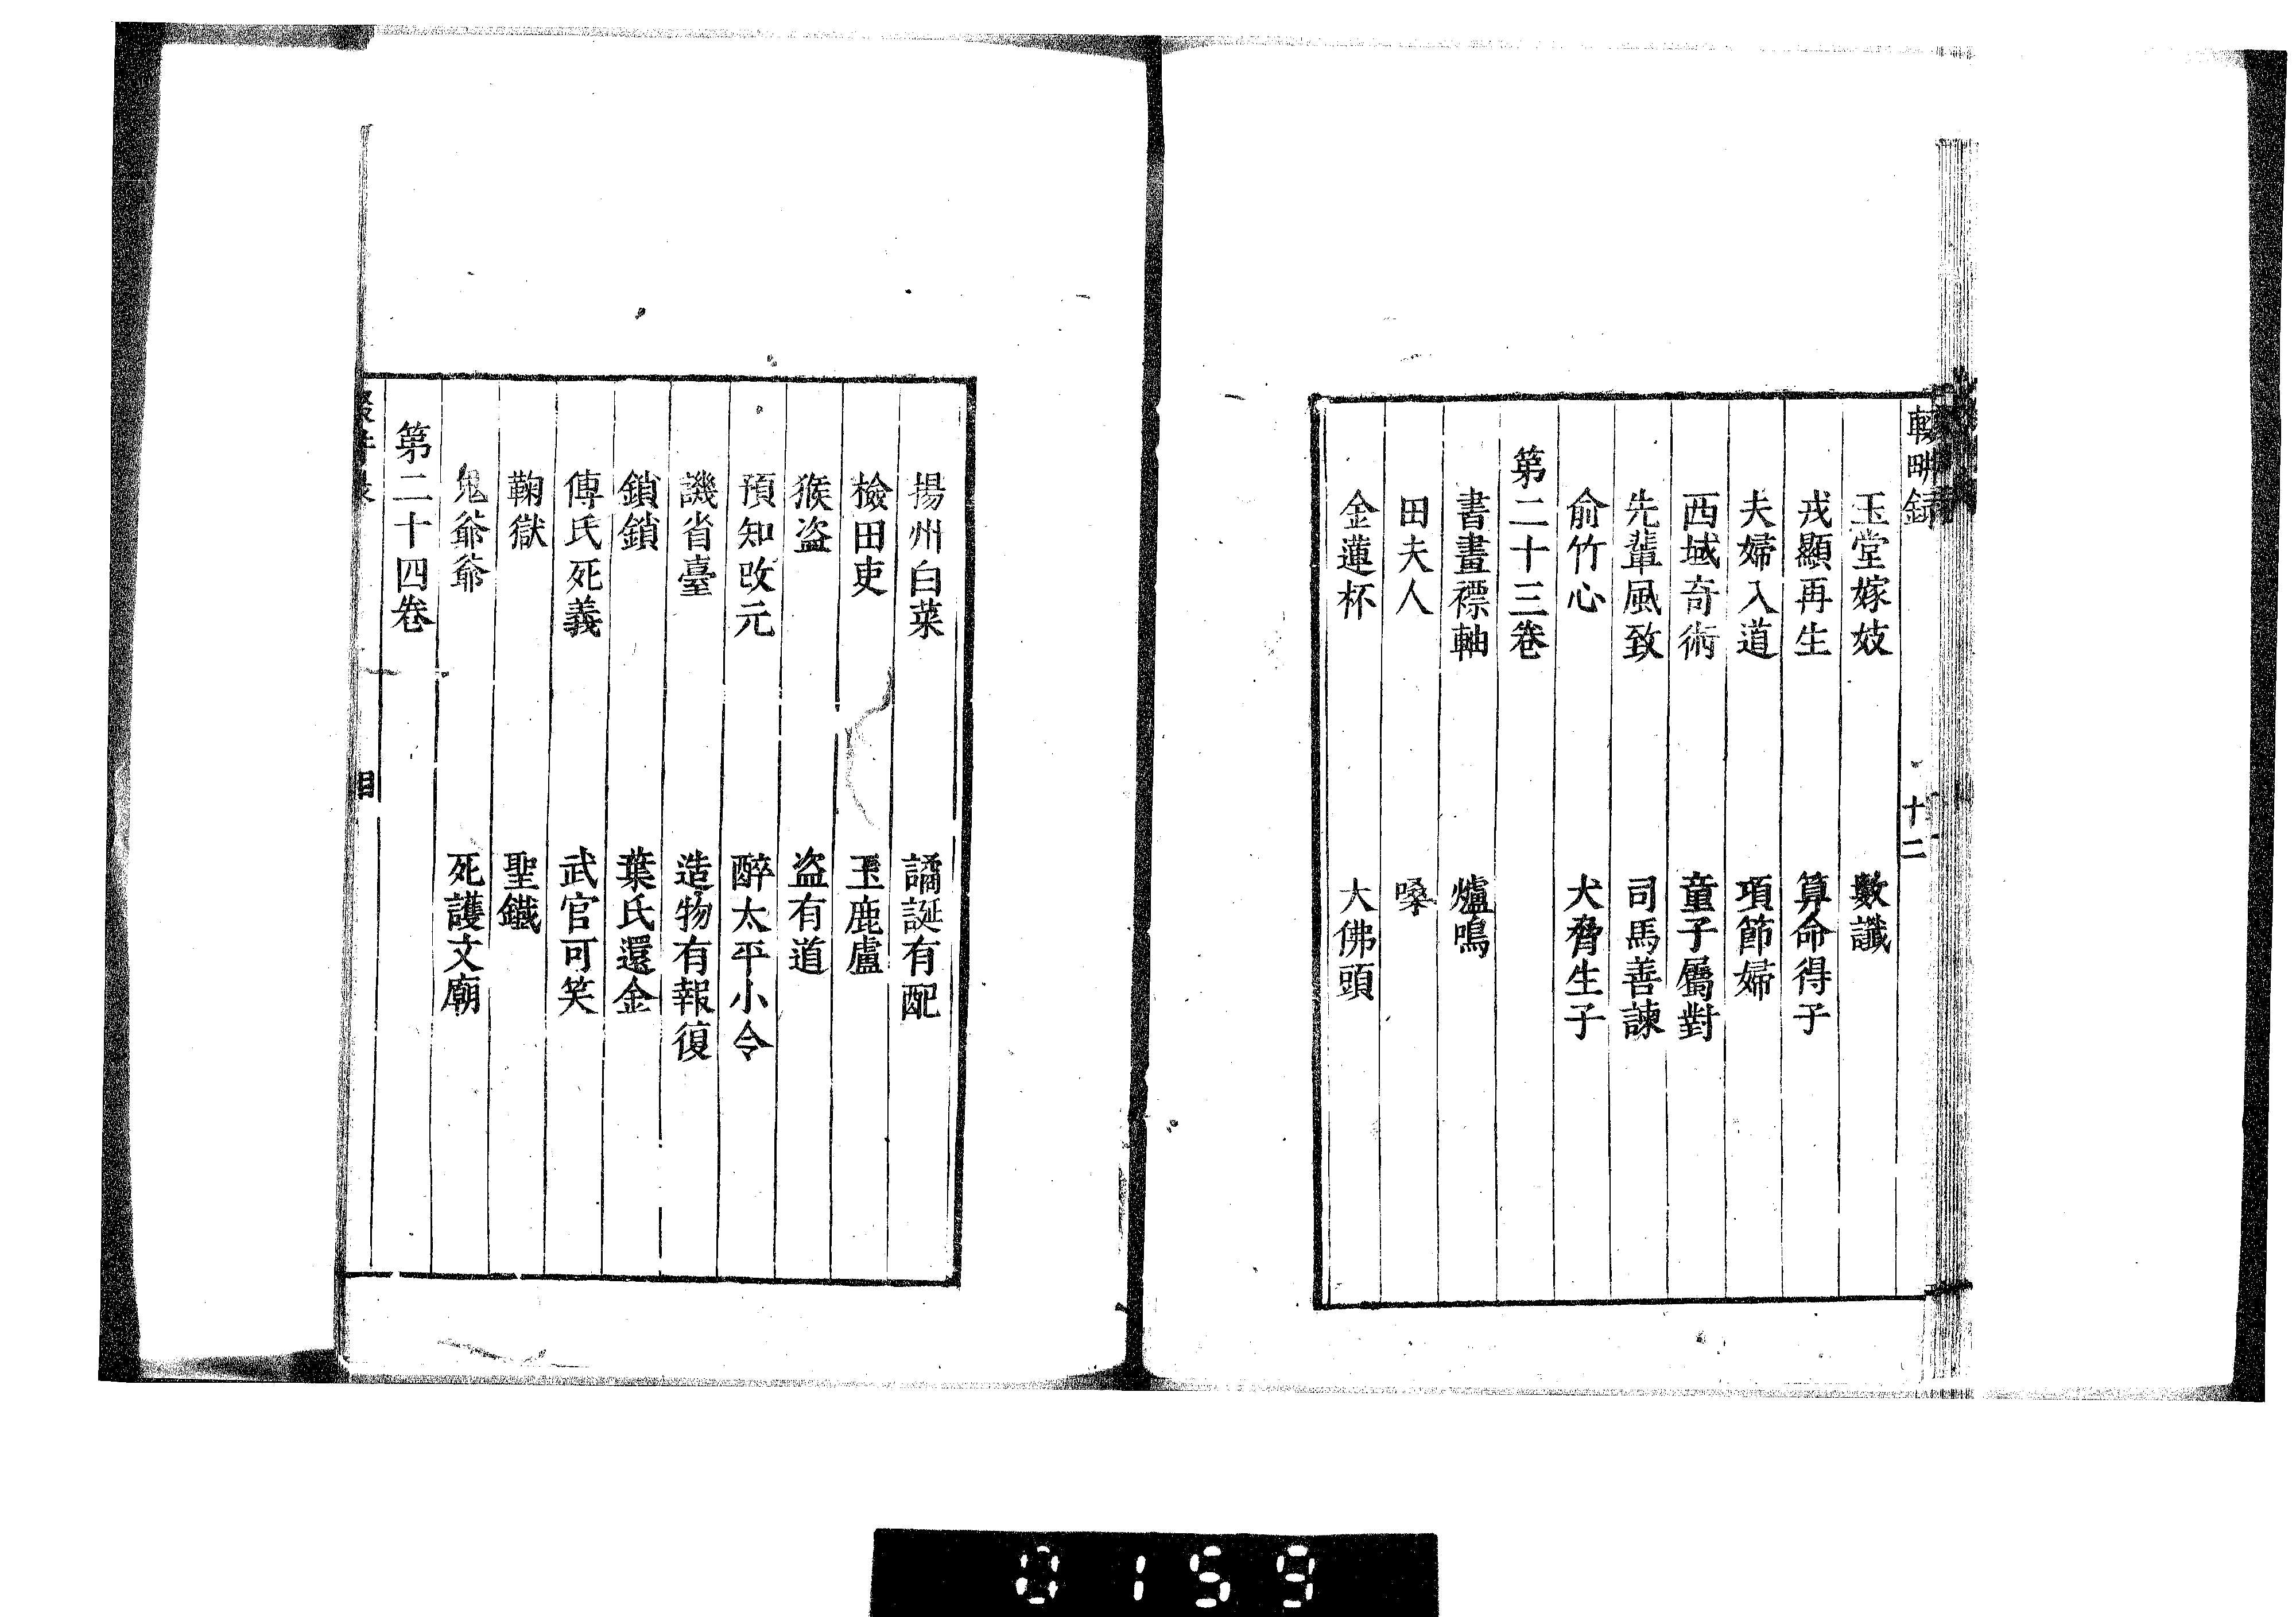 輟畊録 十二
玉堂嫁妓 數讖
戎顯再生 算命得子
夫婦入道 項節婦
西域奇術 童子屬對
先輩風致 司馬善諫
俞竹心 犬脅生子
第二十三卷
書畫褾軸 爐鳴
田夫人 嗓
金蓮杯 大佛頭
揚州白菜 譎誕有配
檢田吏 玉鹿盧
猴盗 盗有道
預知改元 醉太平小令
譏省臺 造物有報復
鎖鎖 葉氏還金
傅氏死義 武官可笑
鞠獄 聖鐵
鬼爺爺 死護文廟
第二十四卷
目
0159